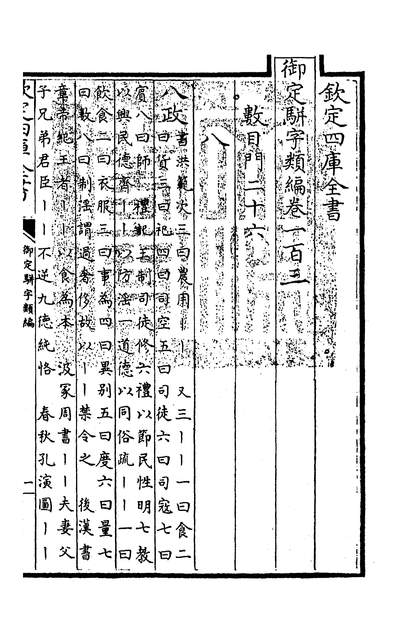 欽定四庫全書
御定駢字類編卷一百三
數目門二十六
八
八政
書洪範次三曰農用丨丨 又三丨丨一曰食二
曰貨三曰祀四曰司空五曰司徒六曰司寇七曰
賓八曰師 禮記王制司徒修六禮以節民性明七教
以興民德齊丨丨以防淫一道德以同俗疏丨丨一曰
飲食二曰衣服三曰事為四曰異别五曰度六曰量七
曰數八曰制淫謂過奢侈故以丨丨禁令之 後漢書
章帝紀王者丨丨以食為本 汲冢周書丨丨夫妻父
子兄弟君臣丨丨不逆九德純恪 春秋孔演圖丨丨
欽定四庫全書
御定駢字類編
一